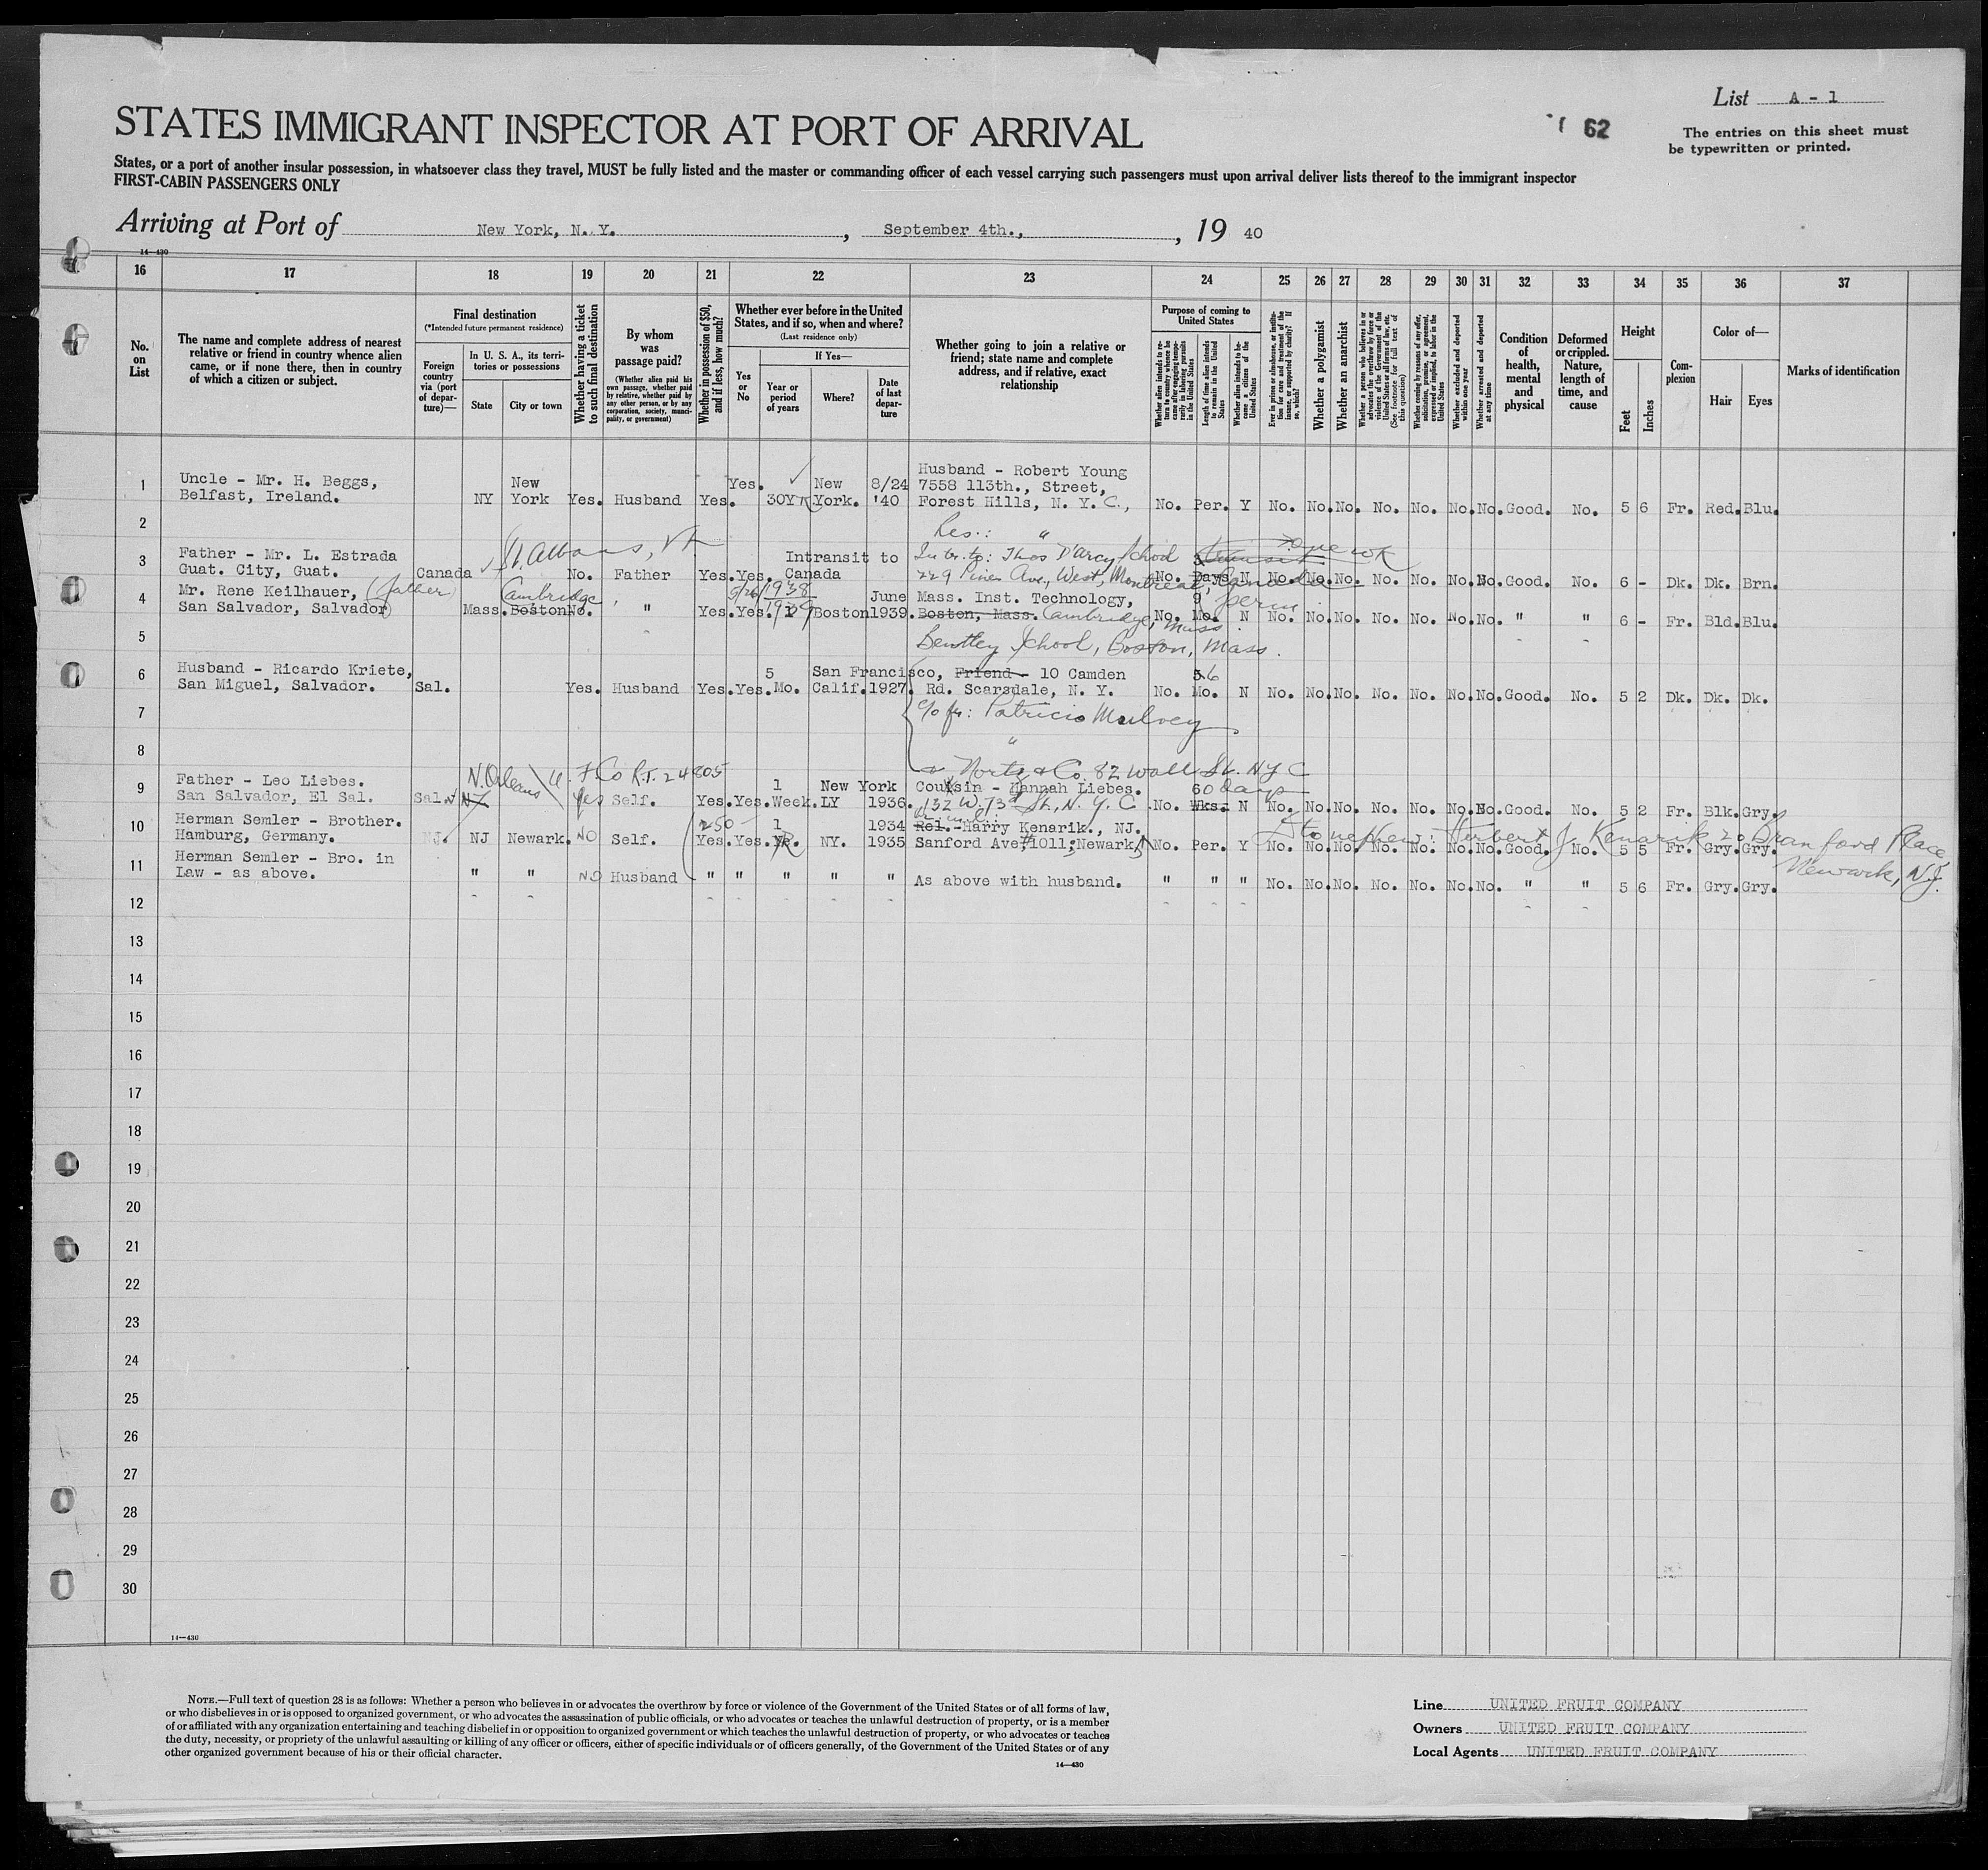 List A - 1
STATES IMMIGRANT INSPECTOR AT PORT OF ARRIVAL
62
The entries on this sheet must
be typewritten or printed.
States, or a port of another insular possession, in whatsoever class they travel, MUST be fully listed and the master or commanding officer of each vessel carrying such passengers must upon arrival deliver lists thereof to the immigrant inspector
FIRST-CABIN PASSENGERS ONLY
Arriving at Port of New York, N. Y. , September 4th., , 19 40
14—430
16 17 18 19 20 21 22 23 24 25 26 27 28 29 30 31 32 33 34 35 36 37
No. on List
The name and complete address of nearest relative or friend in country whence alien came, or if none there, then in country of which a citizen or subject.
Final destination
(*Intended future permanent residence)
Foreign country via (port of departure)—
In U. S. A., its territories or possessions
State
City or town
Whether having a ticket to such final destination
By whom was passage paid?
(Whether alien paid his own passage, whether paid by relative, whether paid by any other person, or by any corporation, society, municipality, or government)
Whether in possession of $50, and if less, how much?
Whether ever before in the United States, and if so, when and where?
(Last residence only)
Yes or No
If Yes—
Year or period of years
Where?
Date of last departure
Whether going to join a relative or friend; state name and complete address, and if relative, exact relationship
Purpose of coming to United States
Length of time alien intends to remain in the United States
Whether alien intends to become a citizen of the United States
Whether a polygamist
Whether an anarchist
(See footnote for full text of this question)
Whether excluded and deported within one year
Whether arrested and deported at any time
Condition of health, mental and physical
Deformed or crippled. Nature, length of time, and cause
Height
Feet
Inches
Complexion
Color of—
Hair
Eyes
Marks of identification
1 Uncle - Mr. H. Beggs, Belfast, Ireland. NY New York Yes. Husband Yes. Yes. 30Y New York. 8/24 '40 Husband - Robert Young 7558 113th., Street, Forest Hills, N. Y. C., No. Per. Y No. No. No. No. No. No. No. Good. No. 5 6 Fr. Red. Blu.
2 Res.: "
3 Father - Mr. L. Estrada Guat. City, Guat. Canada St. Albans, Vt No. Father Yes. Yes. Intransit to Canada In tr. to: Thos D'Arcy School 229 Pines Ave, West, Montreal, Canada No. 3 Days N No. No. No. No. No. No. No. Good. No. 6 - Dk. Dk. Brn.
4 Mr. Rene Keilhauer, (father) San Salvador, Salvador Mass. Boston Cambridge No. " Yes. Yes. 1938 1939 Boston June 1939. Mass. Inst. Technology, Boston, Mass. Cambridge, Mass. No. 9 Mo. perm N No. No. No. No. No. No. No. " " 6 - Fr. Bld. Blu.
5 Bentley School, Boston, Mass.
6 Husband - Ricardo Kriete, San Miguel, Salvador. Sal. Yes. Husband Yes. Yes. 5 Mo. San Francisco, Calif. 1927. Friend - 10 Camden Rd. Scarsdale, N. Y. No. 6 Mo. N No. No. No. No. No. No. No. Good. No. 5 2 Dk. Dk. Dk.
7 c/o fr: Patricio Mulvey
8 "
or Nortz & Co. 82 Wall St. NYC
9 Father - Leo Liebes. San Salvador, El Sal. Sal. NY N. Orleans U. F. Co R.T. 24805 Yes Self. Yes. Yes. 1 Week. New York 1936. Cousin - Hannah Liebes. 132 W. 73d St., N. Y. C. No. Wks. 60 days N No. No. No. No. No. No. No. Good. No. 5 2 Fr. Blk. Gry.
10 Herman Semler - Brother. Hamburg, Germany. NJ. NJ Newark. NO Self. 250 Yes. Yes. 1 Yr. NY. 1934 1935 Rel.-Harry Kenarik., NJ. Sanford Ave, #1011; Newark, No. Per. Y No. No. No. No. No. No. No. Good. No. 5 5 Fr. Gry. Gry.
to nephew: Herbert J. Kenarik 20 Branford Place, Newark, N.J.
11 Herman Semler - Bro. in Law - as above. " " NO Husband " " " " " As above with husband. " " " No. No. No. No. No. No. No. " " 5 6 Fr. Gry. Gry.
12
13
14
15
16
17
18
19
20
21
22
23
24
25
26
27
28
29
30
14—430
NOTE.—Full text of question 28 is as follows: Whether a person who believes in or advocates the overthrow by force or violence of the Government of the United States or of all forms of law,
or who disbelieves in or is opposed to organized government, or who advocates the assassination of public officials, or who advocates or teaches the unlawful destruction of property, or is a member
of or affiliated with any organization entertaining and teaching disbelief in or opposition to organized government or which teaches the unlawful destruction of property, or who advocates or teaches
the duty, necessity, or propriety of the unlawful assaulting or killing of any officer or officers, either of specific individuals or of officers generally, of the Government of the United States or of any
other organized government because of his or their official character.
14—430
Line UNITED FRUIT COMPANY
Owners UNITED FRUIT COMPANY
Local Agents UNITED FRUIT COMPANY